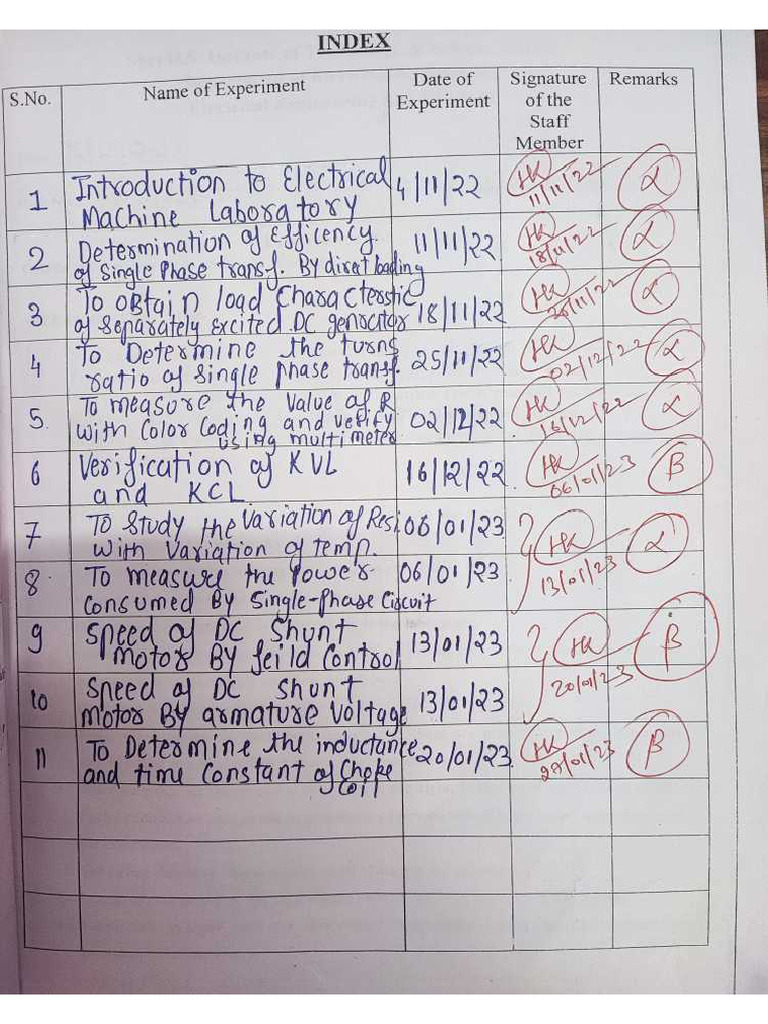 INDEX
S.No. Name of Experiment Date of Experiment Signature of the Staff Member Remarks
1 Introduction to Electrical 4/11/22 HK α
Machine Laboratory 11/11/22
2 Determination of Efficency 11/11/22 HK α
of Single Phase transf. By diret loading 18/11/22
3 To obtain load Characterstic HK α
of Separately Excited DC genrcitor 18/11/22
4 To Determine the turns 25/11/22 HK α
ratio of Single phase transf. 02/12/22
5. To measure the Value of R 02/12/22 HK α
with Color Coding and verify 16/12/22
using multimeter
6 Verification of KVL 16/12/22 HK β
and KCL 06/01/23
7 To Study the Variation of Resi. 06/01/23 HK α
with Variation of temp. 13/01/23
8 To measure the Power 06/01/23
Consumed By Single-Phase Circuit
9 Speed of DC Shunt 13/01/23 HK β
Motor By feild Control 20/01/23
10 Speed of DC Shunt 13/01/23
Motor By armature Voltage
11 To Determine the inductance 20/01/23 HK β
and time Constant of Choke 27/01/23
Coil